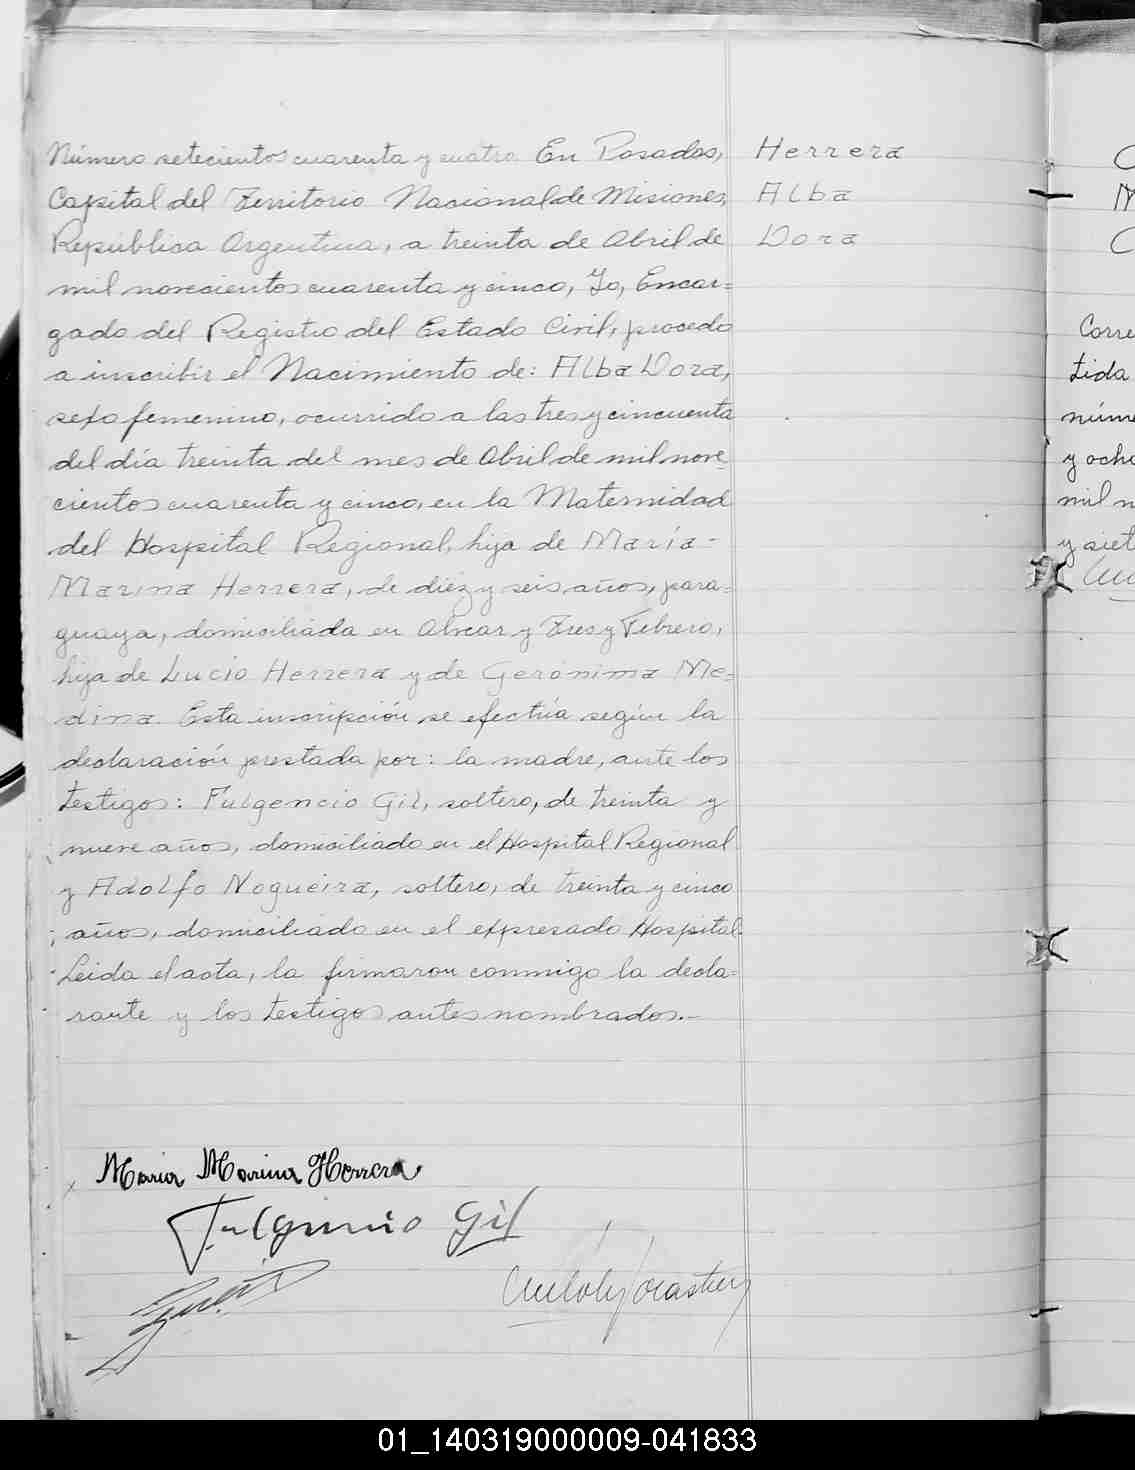 Número setecientos cuarenta y cuatro. En Posadas,
Capital del Territorio Nacional de Misiones,
República Argentina, a treinta de Abril de
mil novecientos cuarenta y cinco, Yo, Encar=
gado del Registro del Estado Civil, procedo
a inscribir el Nacimiento de: Alba Dora,
sexo femenino, ocurrido a las tres y cincuenta
del día treinta del mes de Abril de mil nove=
cientos cuarenta y cinco, en la Maternidad
del Hospital Regional, hija de María-
Marina Herrera, de diéz y seis años, para=
guaya, domiciliada en Alvear y Tres y Febrero,
hija de Lucio Herrera y de Gerónima Me=
dina. Esta inscripción se efectúa según la
declaración prestada por: la madre, ante los
testigos: Fulgencio Gil, soltero, de treinta y
nueve años, domiciliado en el Hospital Regional
y Adolfo Nogueira, soltero, de treinta y cinco
años, domiciliado en el expresado Hospital.
Leida el acta, la firmaron conmigo la decla=
rante y los testigos antes nombrados.-
Herrera
Alba
Dora
Maria Marina Herrera
Fulgencio Gil
Corre
tida
núme
y ocho
mil n
y siet
01_140319000009-041833